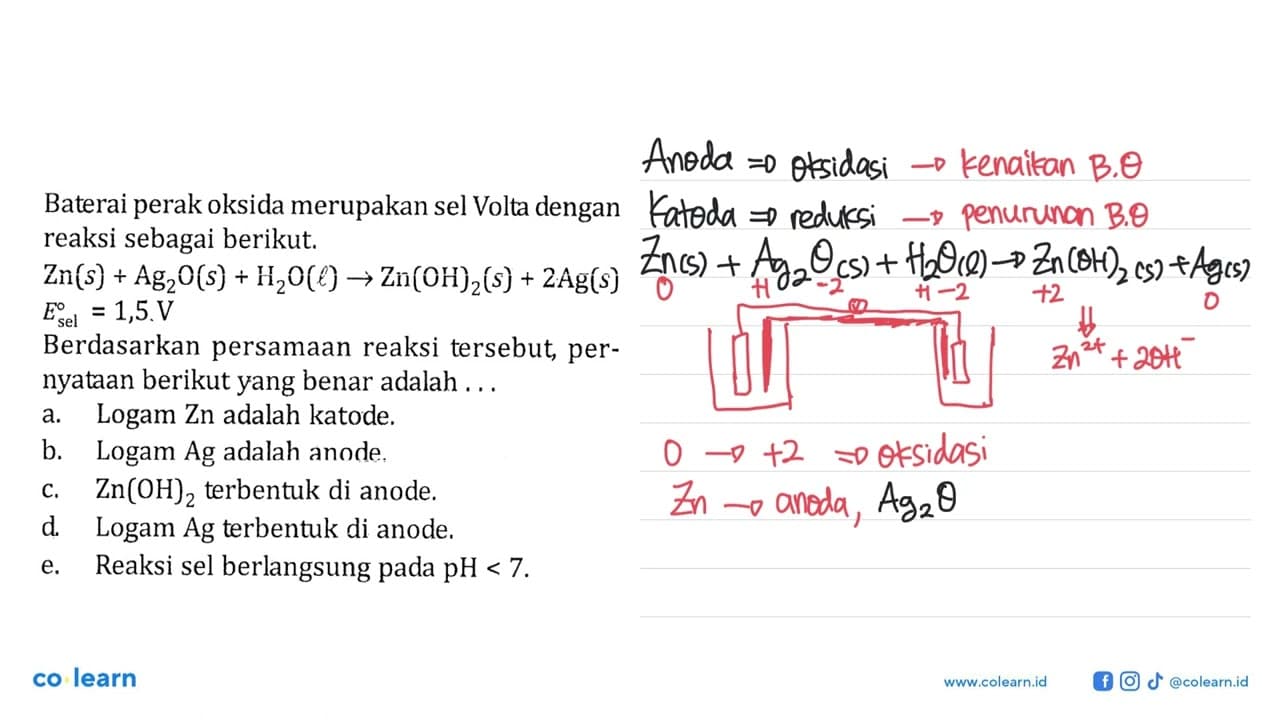 Baterai perak oksida merupakan sel Volta dengan
reaksi sebagai berikut.
Zn(s) + Ag₂O(s) + H₂O(ℓ) → Zn(OH)₂(s) + 2 Ag(s)
E°sel = 1,5 V
Berdasarkan persamaan reaksi tersebut, per-
nyataan berikut yang benar adalah . . .
a. Logam Zn adalah katode.
b. Logam Ag adalah anode.
c. Zn(OH)₂ terbentuk di anode.
d. Logam Ag terbentuk di anode.
e. Reaksi sel berlangsung pada pH < 7.
Anoda => oksidasi → kenaikan B.O
Katoda => reduksi → penurunan B.O
Zn(s) + Ag₂O(s) + H₂O(l) → Zn(OH)₂(s) + Ag(s)
0 +1 -2 +1 -2 +2 0
V
⇓
Zn²⁺ + 2OH⁻
0 → +2 => oksidasi
Zn → anoda, Ag₂O
co learn
www.colearn.id
@colearn.id